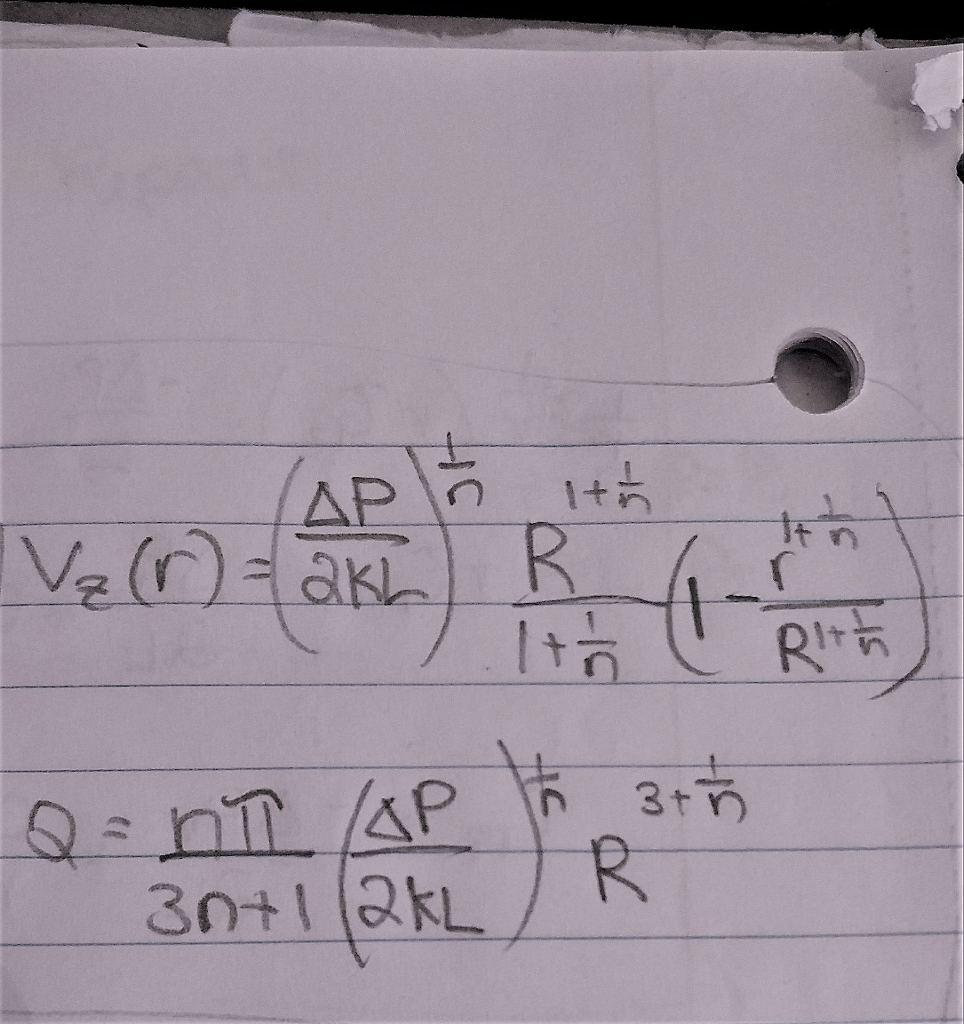 V_z(r) = (ΔP/2KL)^(1/n) R^(1+1/n)/(1+1/n) (1 - r^(1+1/n)/R^(1+1/n))
Q = nπ/(3n+1) (ΔP/2KL)^(1/n) R^(3+1/n)